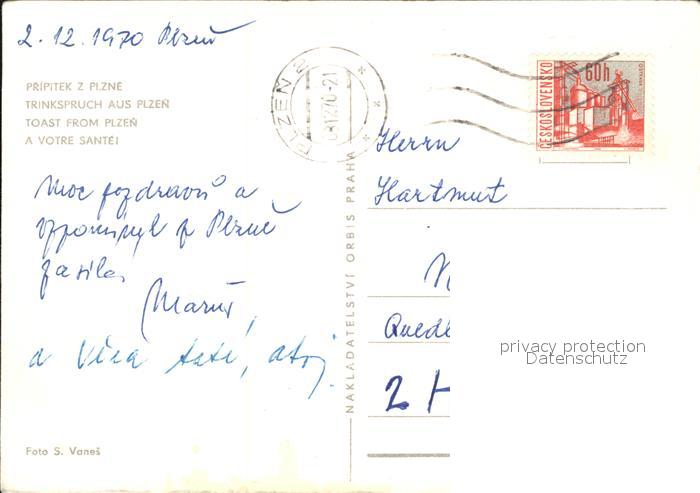 2.12.1970 Plzeň
PŘÍPITEK Z PLZNĚ
TRINKSPRUCH AUS PLZEŇ
TOAST FROM PLZEŇ
A VOTRE SANTÉ!
Moc pozdravů a
z Plzně
a Věra
Foto S. Vaneš
NAKLADATELSTVÍ ORBIS PRAHA
PLZEŇ 2
ČESKOSLOVENSKO
60h
Herrn
Hartmut
Quedl
2
privacy protection
Datenschutz